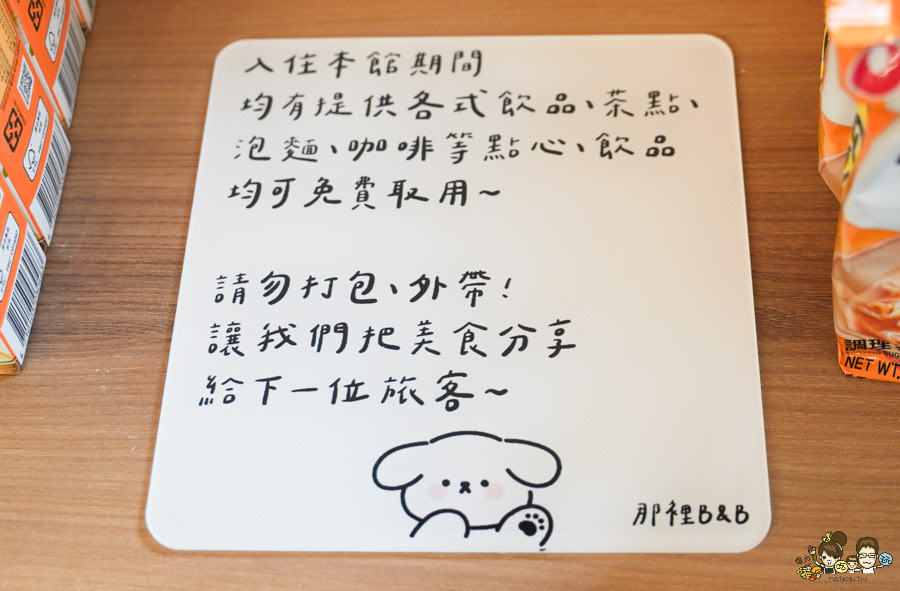 入住本館期間
均有提供各式飲品、茶點、
泡麵、咖啡等點心、飲品
均可免費取用~
請勿打包、外帶!
讓我們把美食分享
給下一位旅客~
那裡B&B
調理
NET WT.